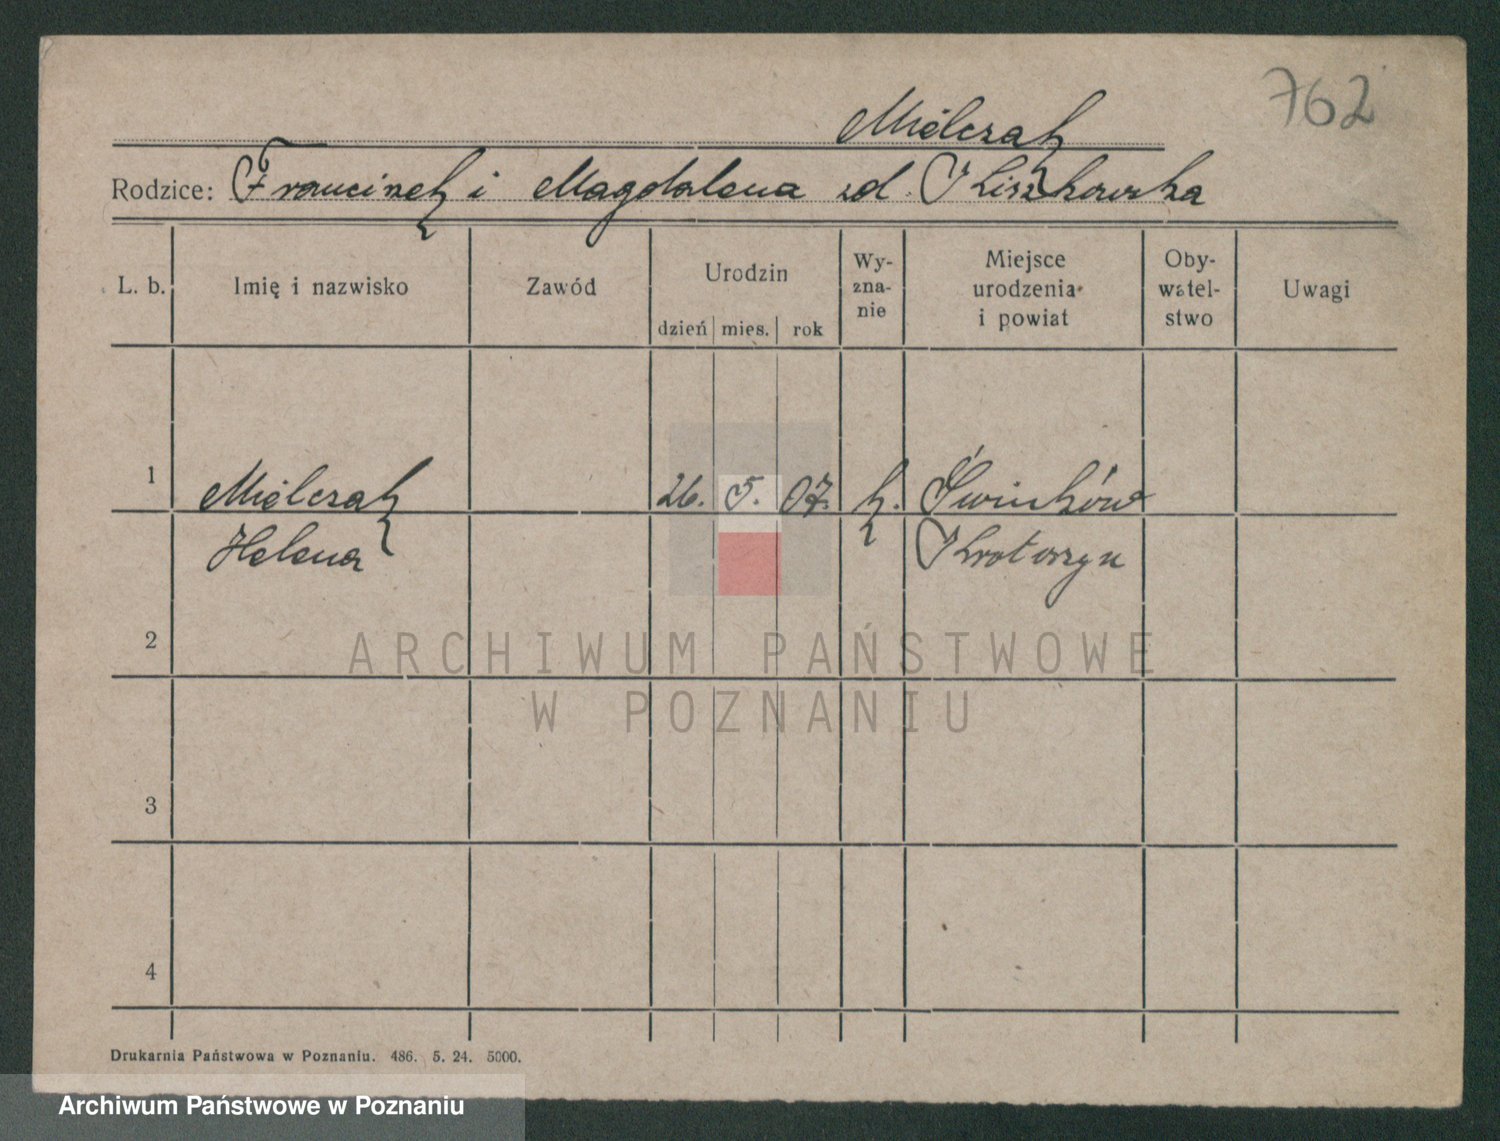 762
Mielczak
Rodzice: Franciszek i Magdalena zd. Kliszkowska
L. b. Imię i nazwisko Zawód Urodzin dzień mies. rok Wy-zna-nie Miejsce urodzenia i powiat Oby-watel-stwo Uwagi
1 Mielczak 26. 5. 07. k.
Helena Krotoszyn
2
ARCHIWUM PAŃSTWOWE
W POZNANIU
3
4
Drukarnia Państwowa w Poznaniu. 486. 5. 24. 5000.
Archiwum Państwowe w Poznaniu